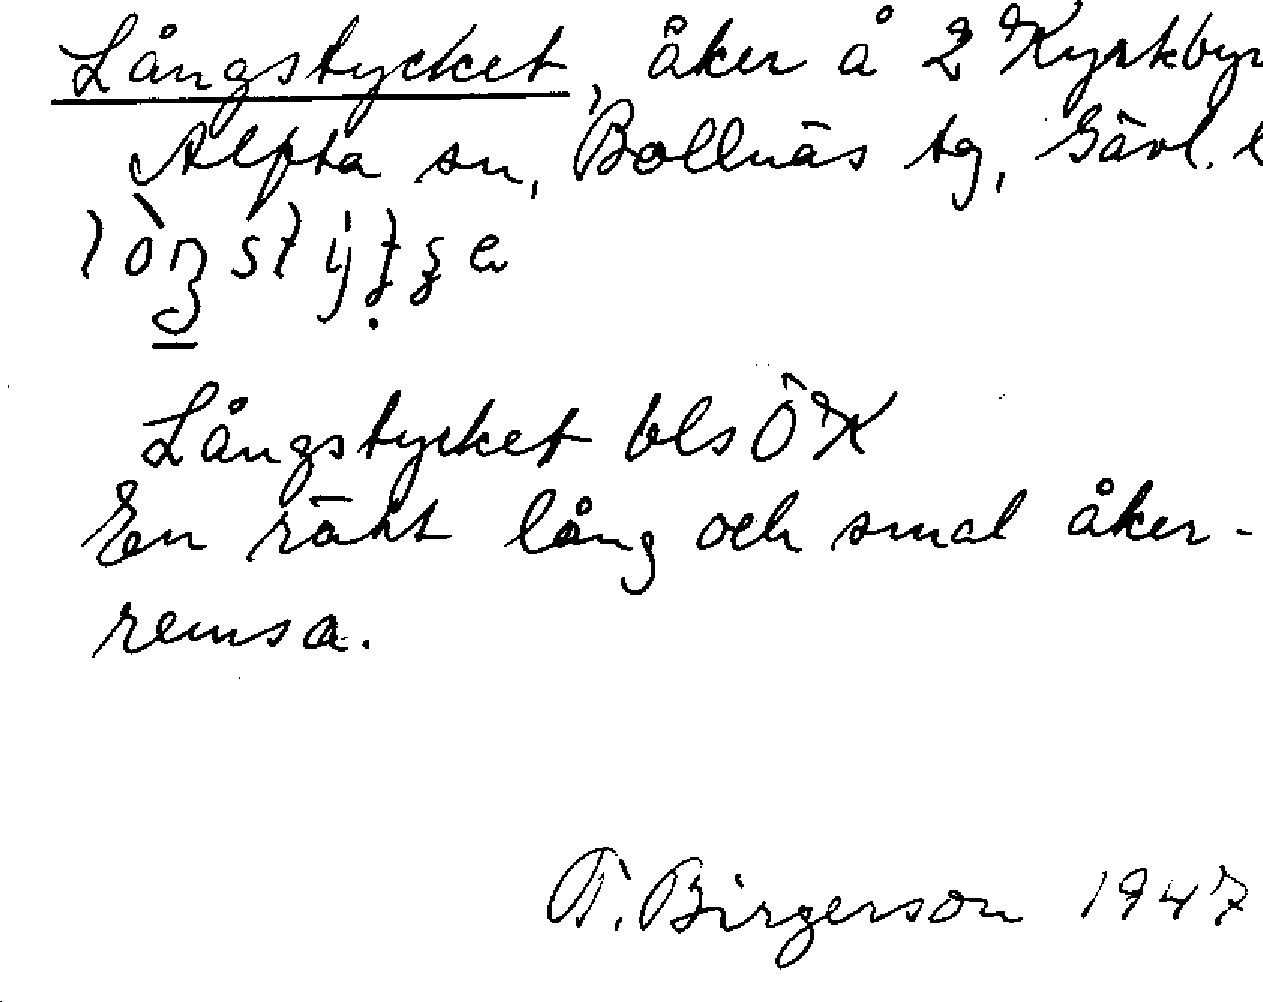 Långstycket, åker å 2 Kyrkbyn
Alfta sn, Bollnäs tg, Gävl. l
Långstycket bls ÖK
En rätt lång och smal åker-
remsa.
T. Birgerson 1947